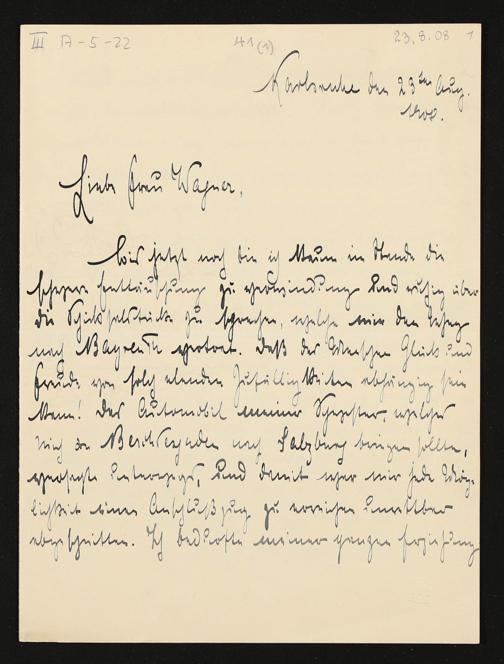 III A-5-22 41(1) 23.8.08 1
Karlsruhe den 23ten Aug.
1908.
Liebe Frau Wagner,
Bis jetzt noch bin ich kaum im Stande die
schwere Enttäuschung zu überwinden und ruhig über
die Schicksalstücke zu sprechen, welche mir den Weg
nach Bayreuth versperrt. Daß des Menschen Glück und
Freude von solch elenden Zufälligkeiten abhängig sein
kann! Das Automobil meiner Schwester, welches
mich von Berchtesgaden nach Salzburg bringen sollte,
versagte unterwegs, und damit war mir jede Mög-
lichkeit einen Anschlußzug zu erreichen
abgeschnitten. Ich bedurfte meiner ganzen Erziehung